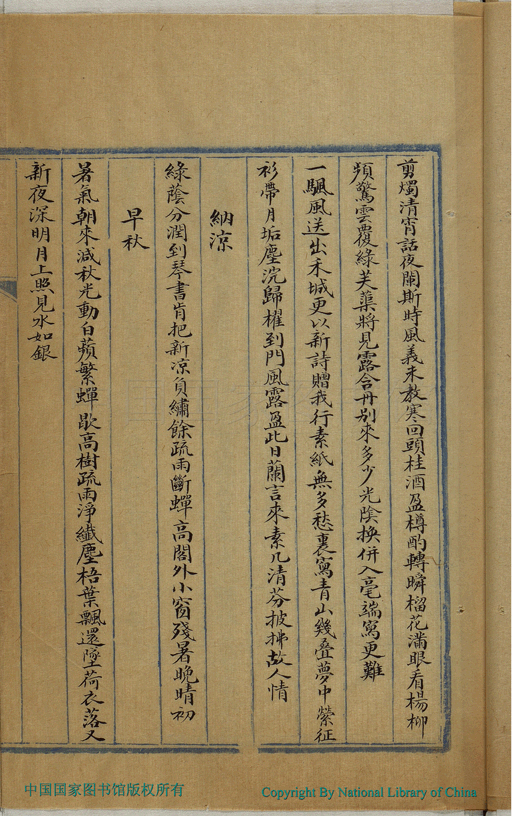 剪燭清宵話夜闌斯時風義未教寒回頭桂酒盈樽酌轉瞬榴花滿眼看楊柳
頻驚雲覆綠芙蕖將見露含丹別來多少光陰換併入毫端寫更難
一颿風送出禾城更以新詩贈我行素紙無多愁裏寫青山幾叠夢中縈征
衫帶月垢塵浣歸櫂到門風露盈此日蘭言來素几清芬披拂故人情
納涼
綠蔭分潤到琴書肯把新涼負繡餘疏雨斷蟬高閣外小窗殘暑晚晴初
早秋
暑氣朝來減秋光動白蘋繁蟬歇高樹疏雨淨纖塵梧葉飄還墜荷衣落又
新夜深明月上照見水如銀
中国国家图书馆版权所有
Copyright By National Library of China